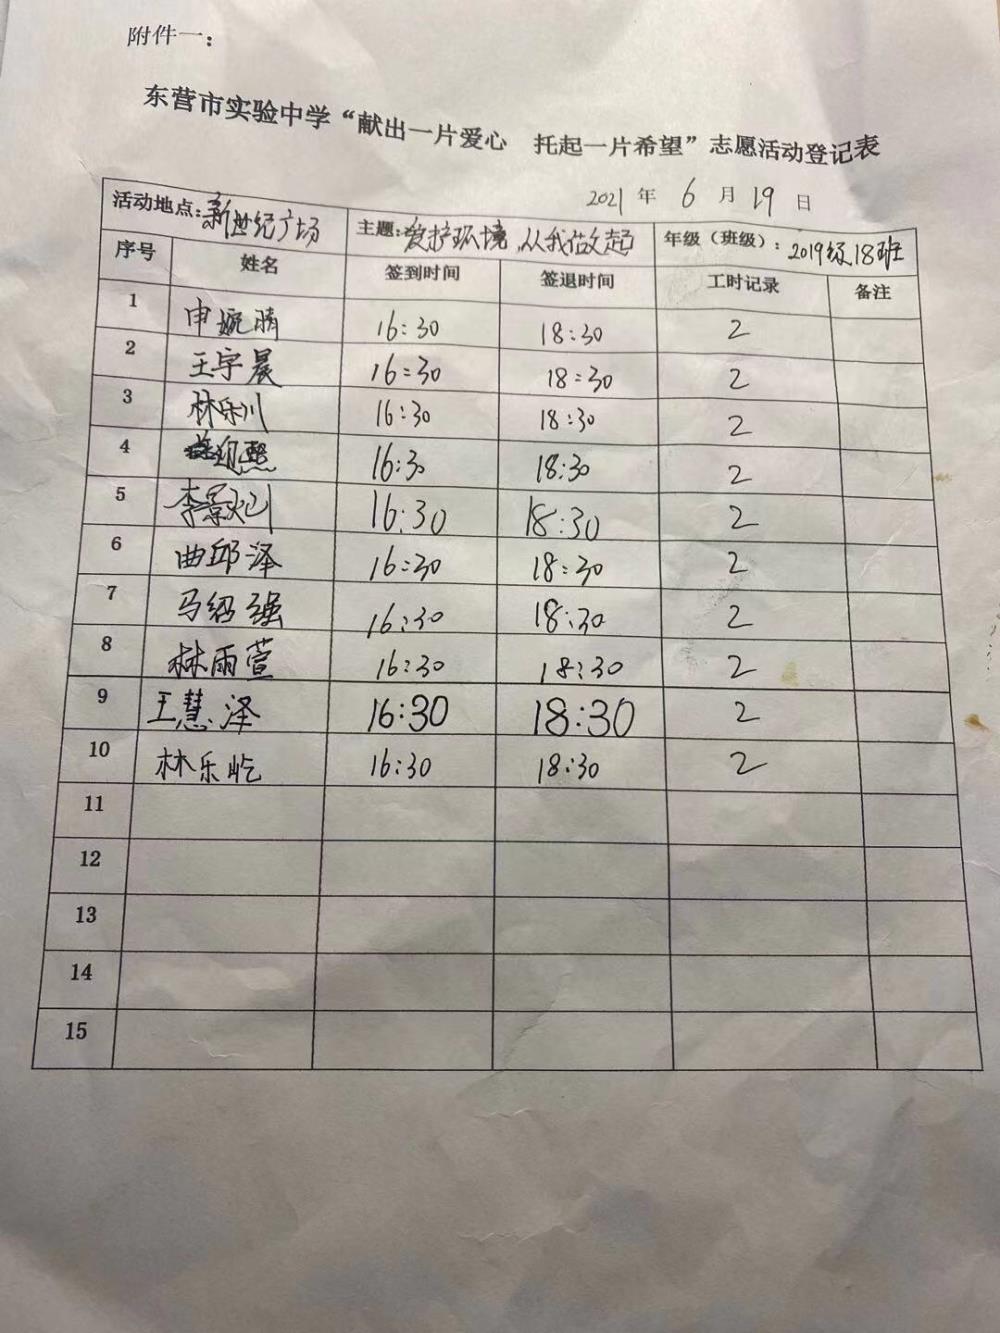 附件一：
东营市实验中学“献出一片爱心 托起一片希望”志愿活动登记表
2021 年 6 月 19 日
活动地点：新世纪广场 主题：爱护环境，从我做起 年级（班级）：2019级18班
序号 姓名 签到时间 签退时间 工时记录 备注
1 申婉晴 16:30 18:30 2
2 王宇晨 16:30 18:30 2
3 林乐川 16:30 18:30 2
4 16:30 18:30 2
5 李景 16:30 18:30 2
6 曲邱泽 16:30 18:30 2
7 马绍强 16:30 18:30 2
8 林雨萱 16:30 18:30 2
9 王慧泽 16:30 18:30 2
10 林乐屹 16:30 18:30 2
11
12
13
14
15